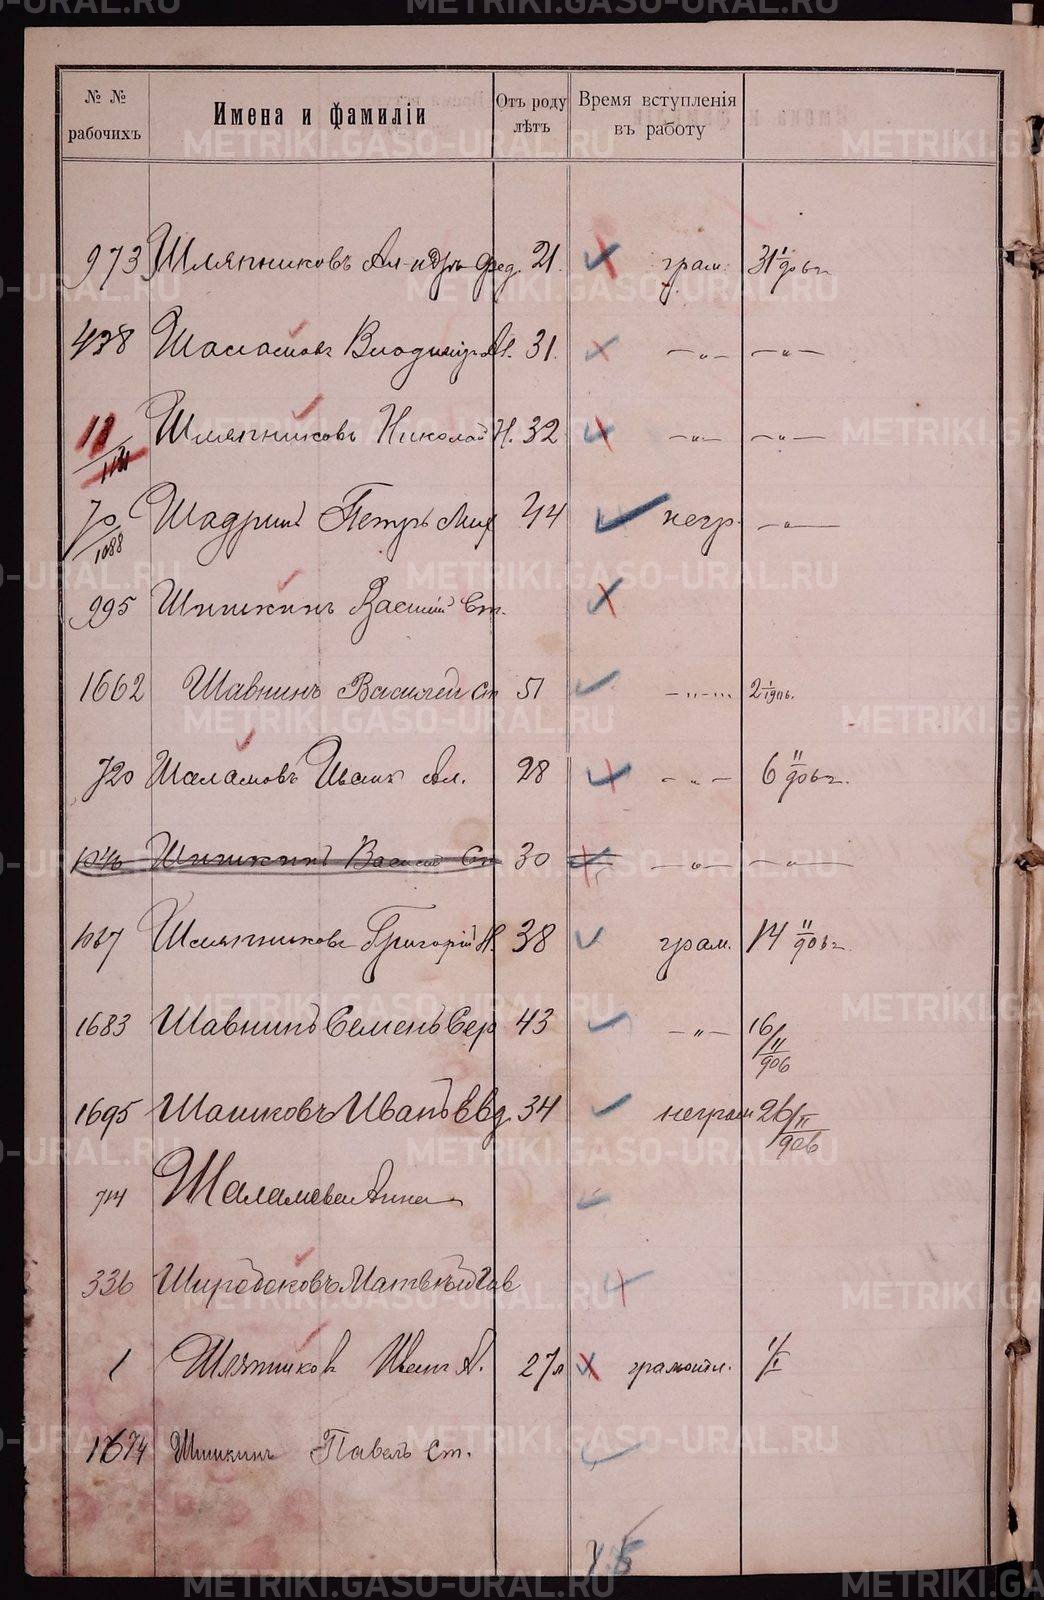 № № рабочихъ Имена и фамиліи Отъ роду лѣтъ Время вступленія въ работу
973 Шляпниковъ Ал-ндръ Фед. 21. грам. 31 1/906 г.
438 Шаламовъ Владиміръ Ал. 31. —„— —„—
Шляпниковъ Николай Н. 32 —„— —„—
70/1088 Шадринъ Петръ Мих 44 негр. —„—
995 Шишкинъ Василій Ст.
1662 Шавнинъ Василій Ст 51 —„— 2
720 Шаламовъ Иванъ Ал. 28 —„— 6 11/906 г.
Шишкинъ Василій Ст 30 —„— —„—
1067 Шляпниковъ Григорій Н. 38 грам. 14 11/906 г.
1683 Шавнинъ Семенъ Сер 43 —„— 16/11/906
1695 Шашковъ Иванъ Евд. 34 неграм 26/11/906
714 Шаламова Анна
336 Матвѣй Сав
1 Шляпников Иван А. 27 л грамотн. 1/1
1674 Шишкинъ Павелъ Ст.
METRIKI.GASO-URAL.RU